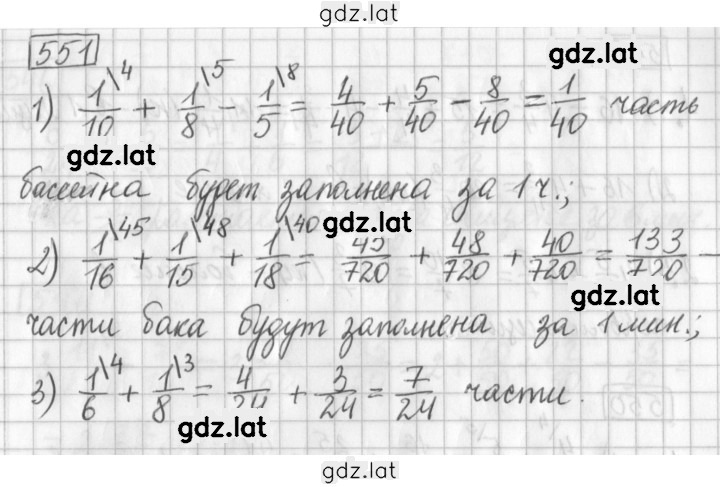 gdz.lat
551
gdz.lat
1) 1/10 \4 + 1/8 \5 - 1/5 \8 = 4/40 + 5/40 - 8/40 = 1/40 часть
gdz.lat
бассейна будет заполнена за 1 ч.;
gdz.lat
2) 1/16 \45 + 1/15 \48 + 1/18 \40 = 45/720 + 48/720 + 40/720 = 133/720 -
gdz.lat
части бака будут заполнена за 1 мин.;
3) 1/6 \4 + 1/8 \3 = 4/24 + 3/24 = 7/24 части.
gdz.lat
gdz.lat